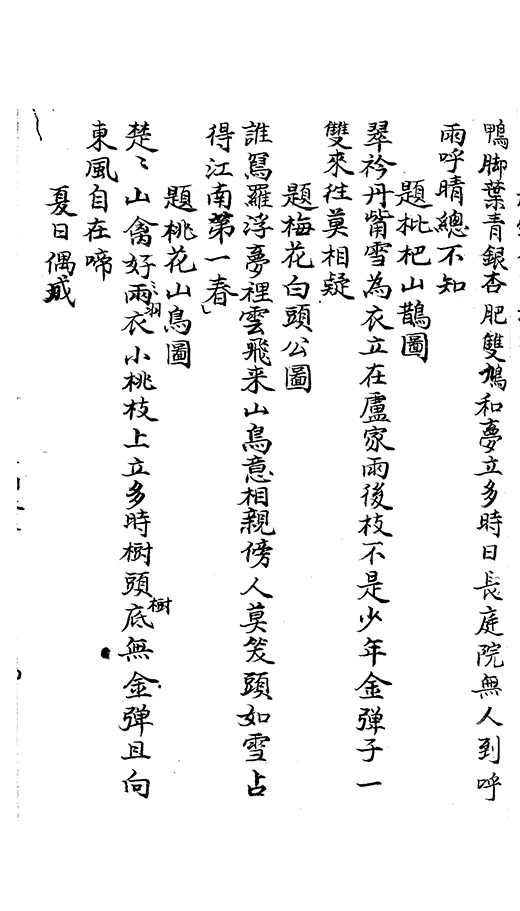 鴨脚葉青銀杏肥雙鳩和夢立多時日長庭院無人到呼
雨呼晴總不知
題枇杷山鵲圖
翠衿丹觜雪為衣立在盧家雨後枝不是少年金彈子一
雙來往莫相疑
題梅花白頭公圖
誰寫羅浮夢裡雲飛来山鳥意相親傍人莫笑頭如雪占
得江南第一春
題桃花山鳥圖
楚〻山禽好雨衣小桃枝上立多時樹頭底無金弹且向
羽
樹
東風自在啼
夏日偶成